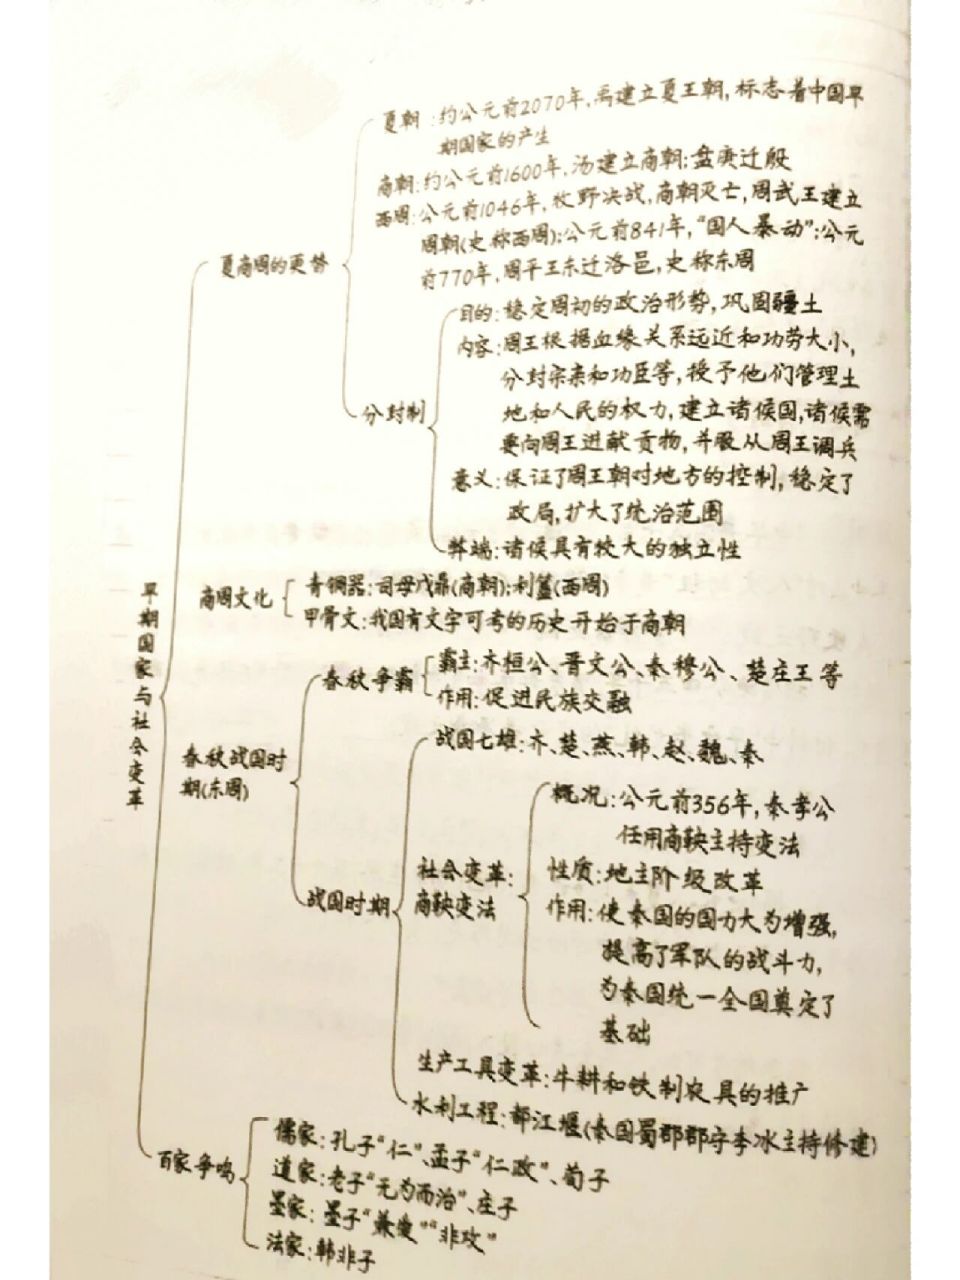 早期国家与社会变革
夏商周的更替
夏朝:约公元前2070年,禹建立夏王朝,标志着中国早
期国家的产生
商朝:约公元前1600年,汤建立商朝;盘庚迁殷
西周:公元前1046年,牧野决战,商朝灭亡,周武王建立
周朝(史称西周);公元前841年,“国人暴动”;公元
前770年,周平王东迁洛邑,史称东周
分封制
目的:稳定周初的政治形势,巩固疆土
内容:周王根据血缘关系远近和功劳大小,
分封宗亲和功臣等,授予他们管理土
地和人民的权力,建立诸侯国,诸侯需
要向周王进献贡物,并服从周王调兵
意义:保证了周王朝对地方的控制,稳定了
政局,扩大了统治范围
弊端:诸侯具有较大的独立性
商周文化
青铜器:司母戊鼎(商朝);利簋(西周)
甲骨文:我国有文字可考的历史开始于商朝
春秋战国时
期(东周)
春秋争霸
霸主:齐桓公、晋文公、秦穆公、楚庄王等
作用:促进民族交融
战国时期
战国七雄:齐、楚、燕、韩、赵、魏、秦
社会变革:
商鞅变法
概况:公元前356年,秦孝公
任用商鞅主持变法
性质:地主阶级改革
作用:使秦国的国力大为增强,
提高了军队的战斗力,
为秦国统一全国奠定了
基础
生产工具变革:牛耕和铁制农具的推广
水利工程:都江堰(秦国蜀郡郡守李冰主持修建)
百家争鸣
儒家:孔子“仁”、孟子“仁政”、荀子
道家:老子“无为而治”、庄子
墨家:墨子“兼爱”“非攻”
法家:韩非子